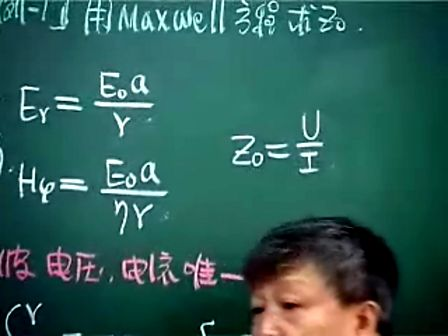 用Maxwell方程求Z₀.
E_r = E₀a / r
H_φ = E₀a / ηr
Z₀ = U / I
电压、电流唯一